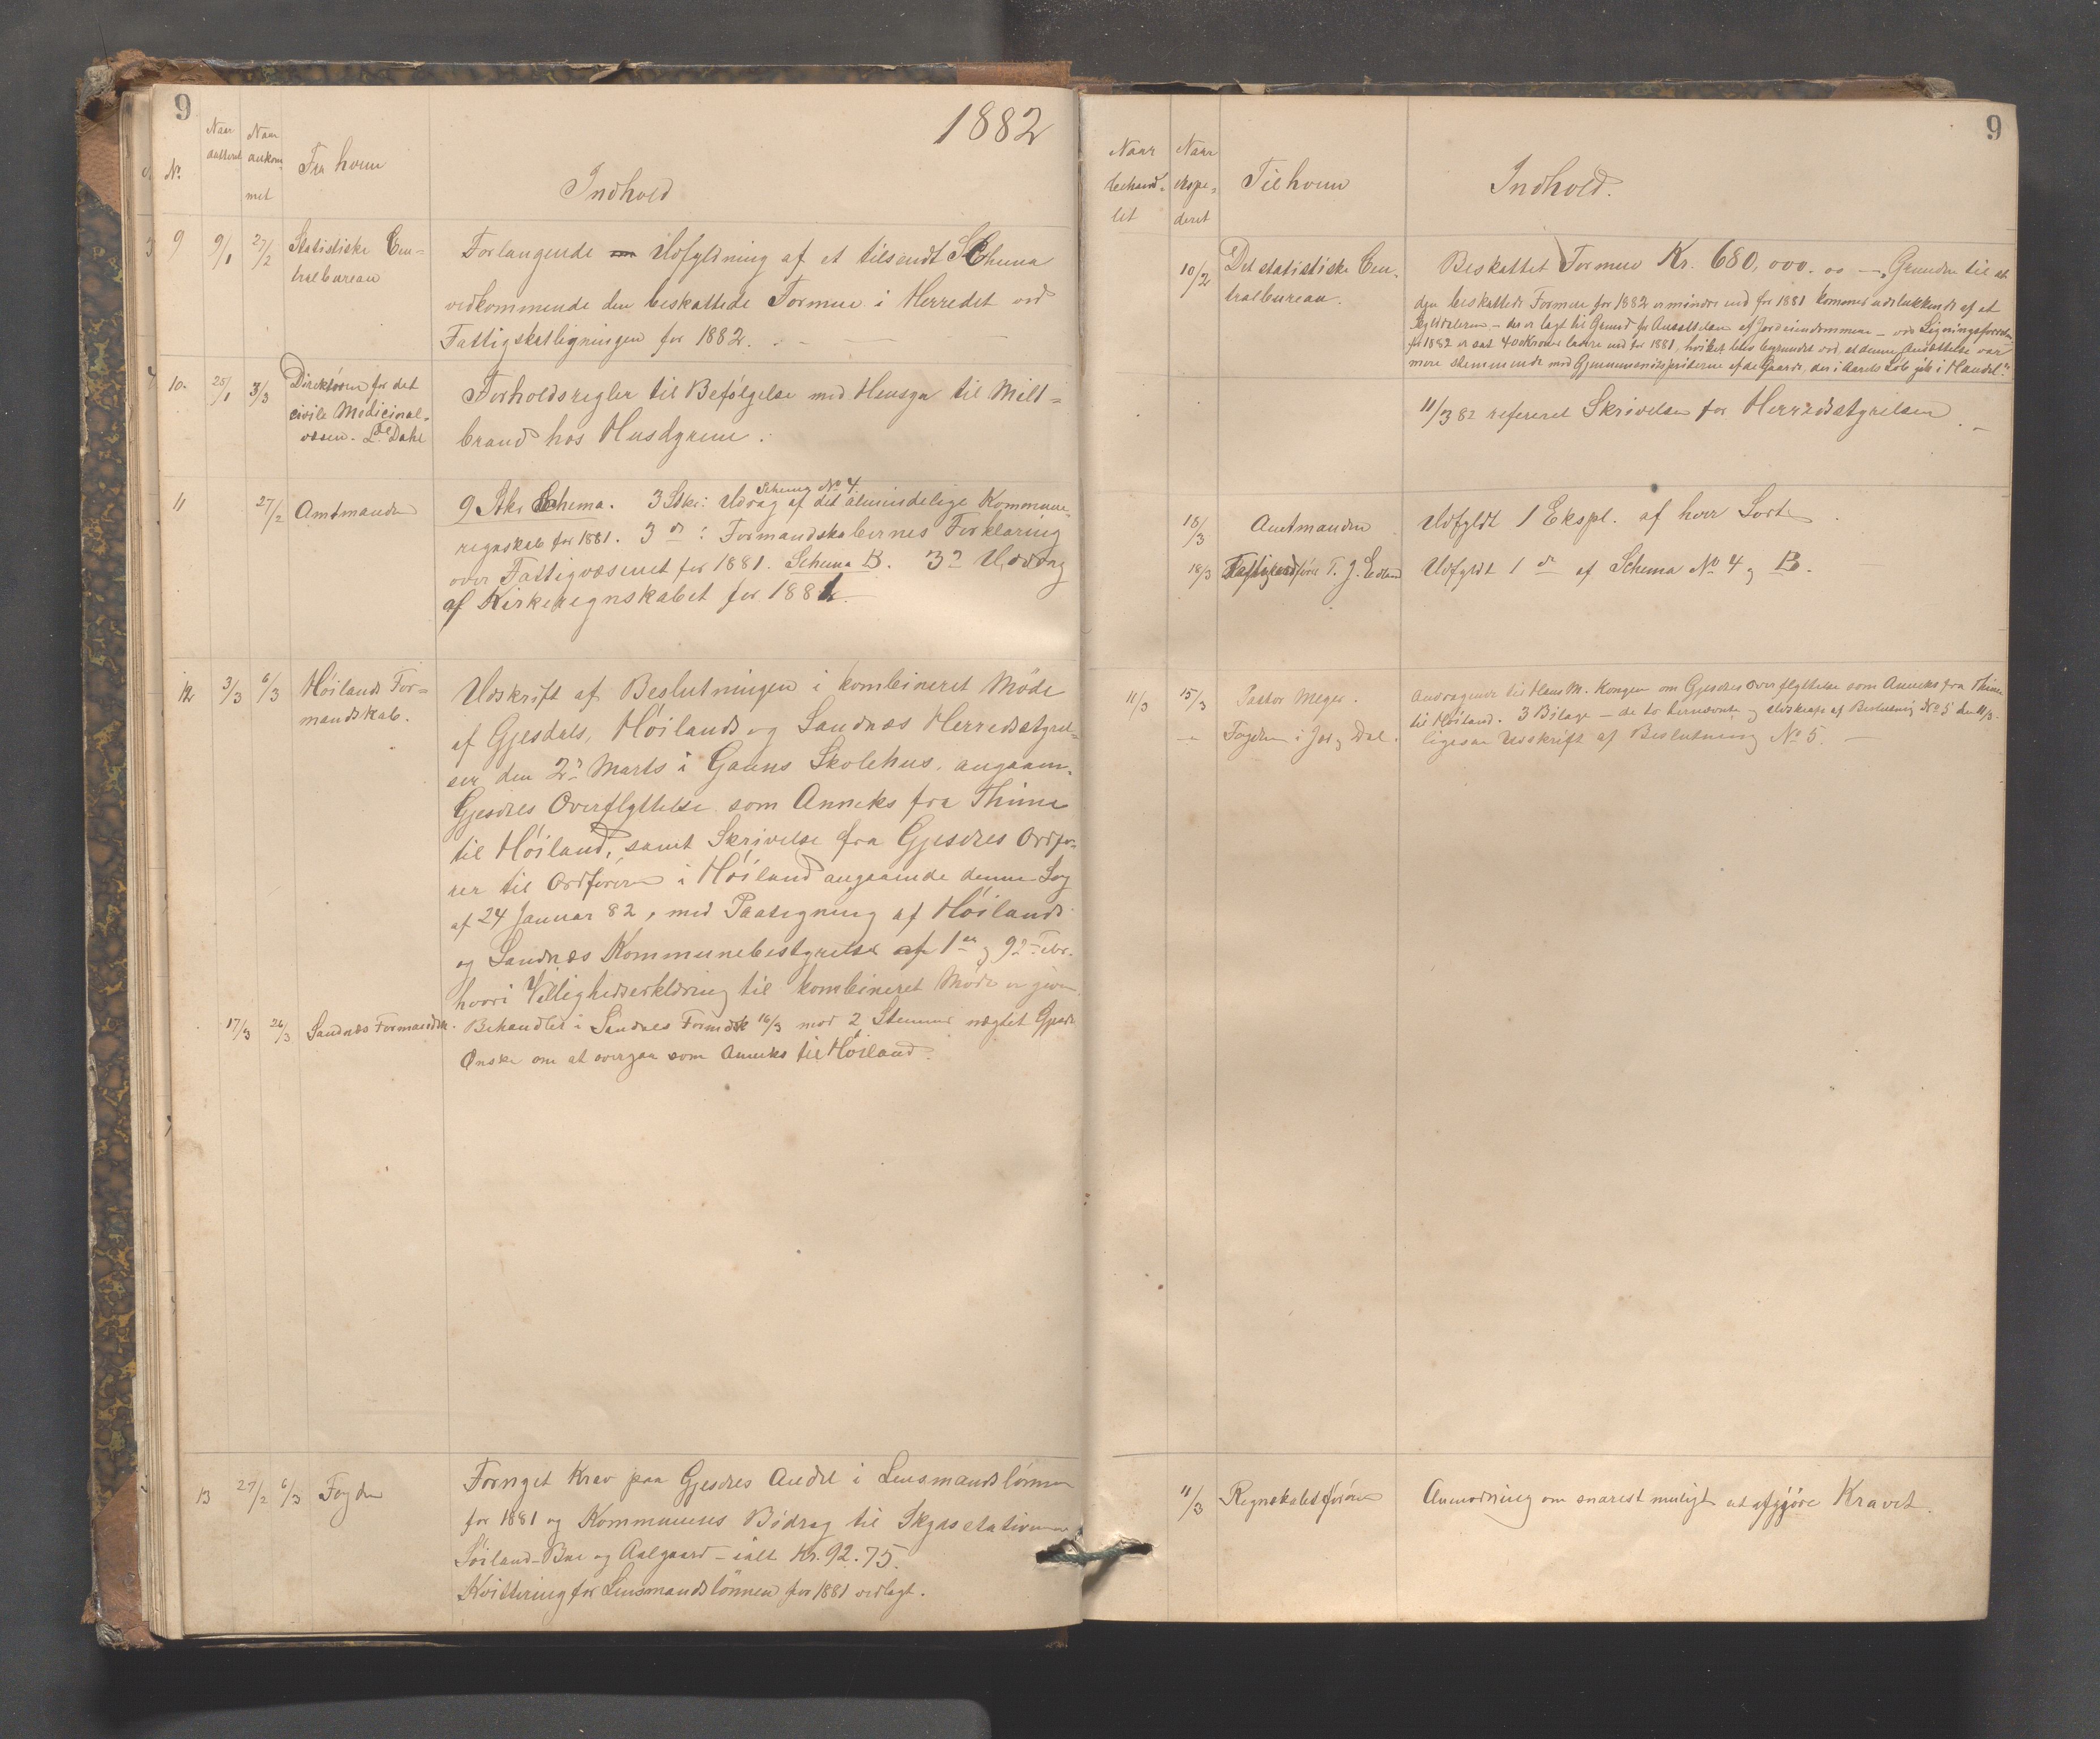 9
1882
No.
Naar
dateret
Naar
ankom-
met
Fra hvem
Indhold
9 9/1 27/2 Statistiske Cen-
tralbureau
Forlangende Udfyldning af et tilsendt Schema
vedkommende den beskattede Formue i Herredet ved
Fattigskatligningen for 1882.
10. 25/1 3/3 Direktören for det
civile Medicinal-
væsen. L. Dahl
Forholdsregler til Befölgelse med Hensyn til Milt-
brand hos Husdyrene.
11 27/2 Amtmanden
Schema No 4
9 Stkr Schema. 3 Stkr: Udrag af det almindelige Kommune-
regnskab for 1881. 3 do: Formandskabernes Forklaring
over Fattigvæsenet for 1881. Schema B. 3 do Uddrag
af Kirkeregnskabet for 1881.
12 3/3 6/3 Höilands For-
mandskab.
Udskrift af Beslutningen i kombineret Möde
af Gjesdals, Höilands og Sandnæs Herredsstyrel-
ser den 2den Marts i Gauns Skolehus, angaaen-
Gjesdals Overflyttelse som Anneks fra Thime
til Höiland, samt Skrivelse fra Gjesdals Ordfö-
rer til Ordföreren i Höiland angaaende denne Sag
af 24 Januar 82, med Paategning af Höilands
og Sandnæs Kommunebestyrelse af 1ste og 9de Febr.
hvori Villighedserklæring til kombineret Möde er given
17/3 26/3 Sandnæs Formandsk.
Behandlet i Sandnes Formdsk 16/3 mod 2 Stemmer nægtet Gjesd.
Önske om at overgaa som Anneks til Höiland.
13 27/2 6/3 Fogden
Fornyet Krav paa Gjesdals Andel i Lensmandslönnen
for 1881 og Kommunens Bidrag til Skydsstationerne
Söiland-Bue og Aalgaard - ialt Kr. 92.75.
Kvittering for Lensmandslönnen for 1881 vedlagt.
9
Naar
behand-
let
Naar
ekspe-
deret
Til hvem
Indhold.
10/2 Det statistiske Cen-
tralbureau.
Beskattet Formue Kr. 680,000.00 — „Grunden til at
den beskattede Formue for 1882 er mindre end for 1881 kommer udelukkende af at
Skylddaleren - der er lagt til Grund for Ansættelsen af Jordeiendommene - ved Ligningsforretn.
for 1882 er sat 400 Kroner lavere end for 1881, hvilket blev begrundet ved, at denne Ansættelse var
mere stemmende med Gjennemsnitspriserne af de Gaarde, der i Aarets Löb gik i Handel."
11/3 82 refereret Skrivelsen for Herredsstyrelsen.
18/3 Amtmanden
Udfyldt 1 Ekspl. af hver Sort
18/3 T. J. Edland
Udfyldt 1 do af Schema No 4 og B.
11/3 15/3 Pastor Meyer.
Andragende til Hans M. Kongen om Gjesdals Overflyttelse som Anneks fra Thime
til Höiland. 3 Bilage - de to hernævnte og Udskrift af Beslutning No 5 den 11/3.
Fogden i Jæd. og Dal.
ligesaa Udskrift af Beslutning No 5.
11/3 Regnskabsföreren
Anmodning om snarest muligt at afgjöre Kravet.